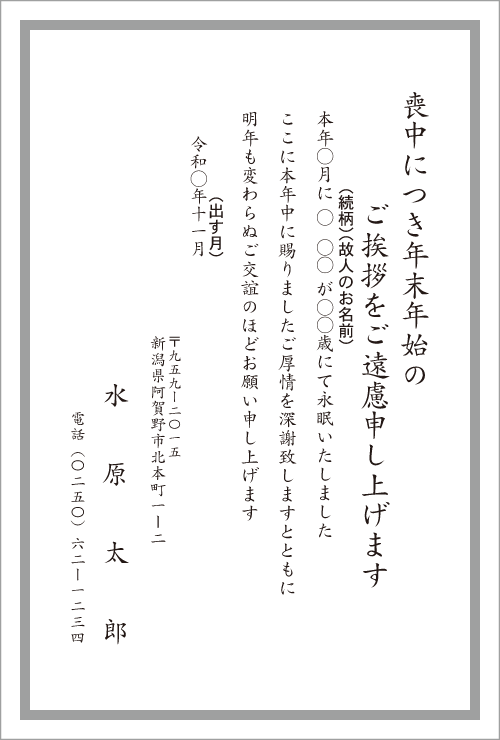 喪中につき年末年始の
ご挨拶をご遠慮申し上げます
（続柄）（故人のお名前）
本年〇月に 〇 〇〇 が〇〇歳にて永眠いたしました
ここに本年中に賜りましたご厚情を深謝致しますとともに
明年も変わらぬご交誼のほどお願い申し上げます
（出す月）
令和〇年十一月
〒九五九ー二〇一五
新潟県阿賀野市北本町一ー二
水原太郎
電話（〇二五〇）六二ー一二三四